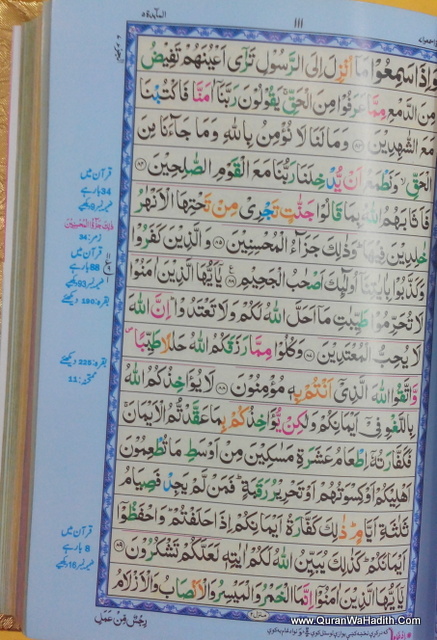 المآئدة ٥
١١١
وَاِذَا سَمِعُوْا مَاۤ اُنْزِلَ اِلَى الرَّسُوْلِ تَرٰۤى اَعْيُنَهُمْ تَفِيْضُ
مِنَ الدَّمْعِ مِمَّا عَرَفُوْا مِنَ الْحَقِّ ۚ يَقُوْلُوْنَ رَبَّنَاۤ اٰمَنَّا فَاكْتُبْنَا
مَعَ الشّٰهِدِيْنَ ﴿۸۳﴾ وَمَا لَنَا لَا نُؤْمِنُ بِاللّٰهِ وَمَا جَآءَنَا مِنَ
الْحَقِّ ۙ وَنَطْمَعُ اَنْ يُّدْخِلَنَا رَبُّنَا مَعَ الْقَوْمِ الصّٰلِحِيْنَ ﴿۸۴﴾
فَاَثَابَهُمُ اللّٰهُ بِمَا قَالُوْا جَنّٰتٍ تَجْرِىْ مِنْ تَحْتِهَا الْاَنْهٰرُ
خٰلِدِيْنَ فِيْهَا ؕ وَذٰلِكَ جَزَآءُ الْمُحْسِنِيْنَ ﴿۸۵﴾ وَالَّذِيْنَ كَفَرُوْا
وَكَذَّبُوْا بِاٰيٰتِنَاۤ اُولٰٓئِكَ اَصْحٰبُ الْجَحِيْمِ ﴿۸۶﴾ يٰۤاَيُّهَا الَّذِيْنَ اٰمَنُوْا
لَا تُحَرِّمُوْا طَيِّبٰتِ مَاۤ اَحَلَّ اللّٰهُ لَكُمْ وَلَا تَعْتَدُوْا ؕ اِنَّ اللّٰهَ
لَا يُحِبُّ الْمُعْتَدِيْنَ ﴿۸۷﴾ وَكُلُوْا مِمَّا رَزَقَكُمُ اللّٰهُ حَلٰلًا طَيِّبًا ۪
وَّاتَّقُوا اللّٰهَ الَّذِىْۤ اَنْتُمْ بِهٖ مُؤْمِنُوْنَ ﴿۸۸﴾ لَا يُؤَاخِذُكُمُ اللّٰهُ
بِاللَّغْوِ فِىْۤ اَيْمَانِكُمْ وَلٰكِنْ يُّؤَاخِذُكُمْ بِمَا عَقَّدْتُّمُ الْاَيْمَانَ ۚ
فَكَفَّارَتُهٗۤ اِطْعَامُ عَشَرَةِ مَسٰكِيْنَ مِنْ اَوْسَطِ مَا تُطْعِمُوْنَ
اَهْلِيْكُمْ اَوْ كِسْوَتُهُمْ اَوْ تَحْرِيْرُ رَقَبَةٍ ؕ فَمَنْ لَّمْ يَجِدْ فَصِيَامُ
ثَلٰثَةِ اَيَّامٍ ؕ ذٰلِكَ كَفَّارَةُ اَيْمَانِكُمْ اِذَا حَلَفْتُمْ ؕ وَاحْفَظُوْۤا
اَيْمَانَكُمْ ؕ كَذٰلِكَ يُبَيِّنُ اللّٰهُ لَكُمْ اٰيٰتِهٖ لَعَلَّكُمْ تَشْكُرُوْنَ ﴿۸۹﴾
يٰۤاَيُّهَا الَّذِيْنَ اٰمَنُوْۤا اِنَّمَا الْخَمْرُ وَالْمَيْسِرُ وَالْاَنْصَابُ وَالْاَزْلَامُ
رِجْسٌ مِّنْ عَمَلِ
قرآن میں
34 بار ہے
ذٰلِكَ جَزَآءُ الْمُحْسِنِيْنَ
زمر: 34
قرآن میں
بقرہ: 190 دیکھئے
بقرہ: 225 دیکھئے
ممتحنہ: 11
قرآن میں
8 بار ہے
www.QuranWaHadith.Com